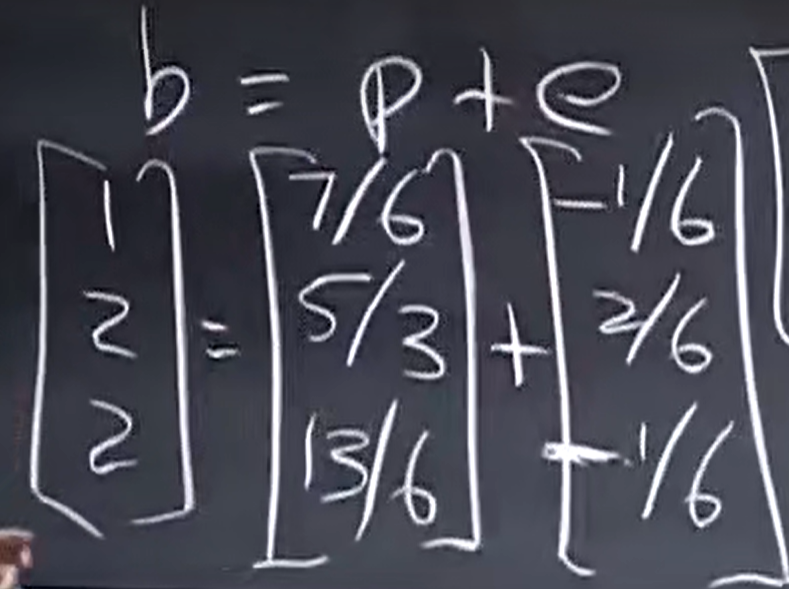 b = p + e
[1 2 2] = [7/6 5/3 13/6] + [-1/6 2/6 -1/6]